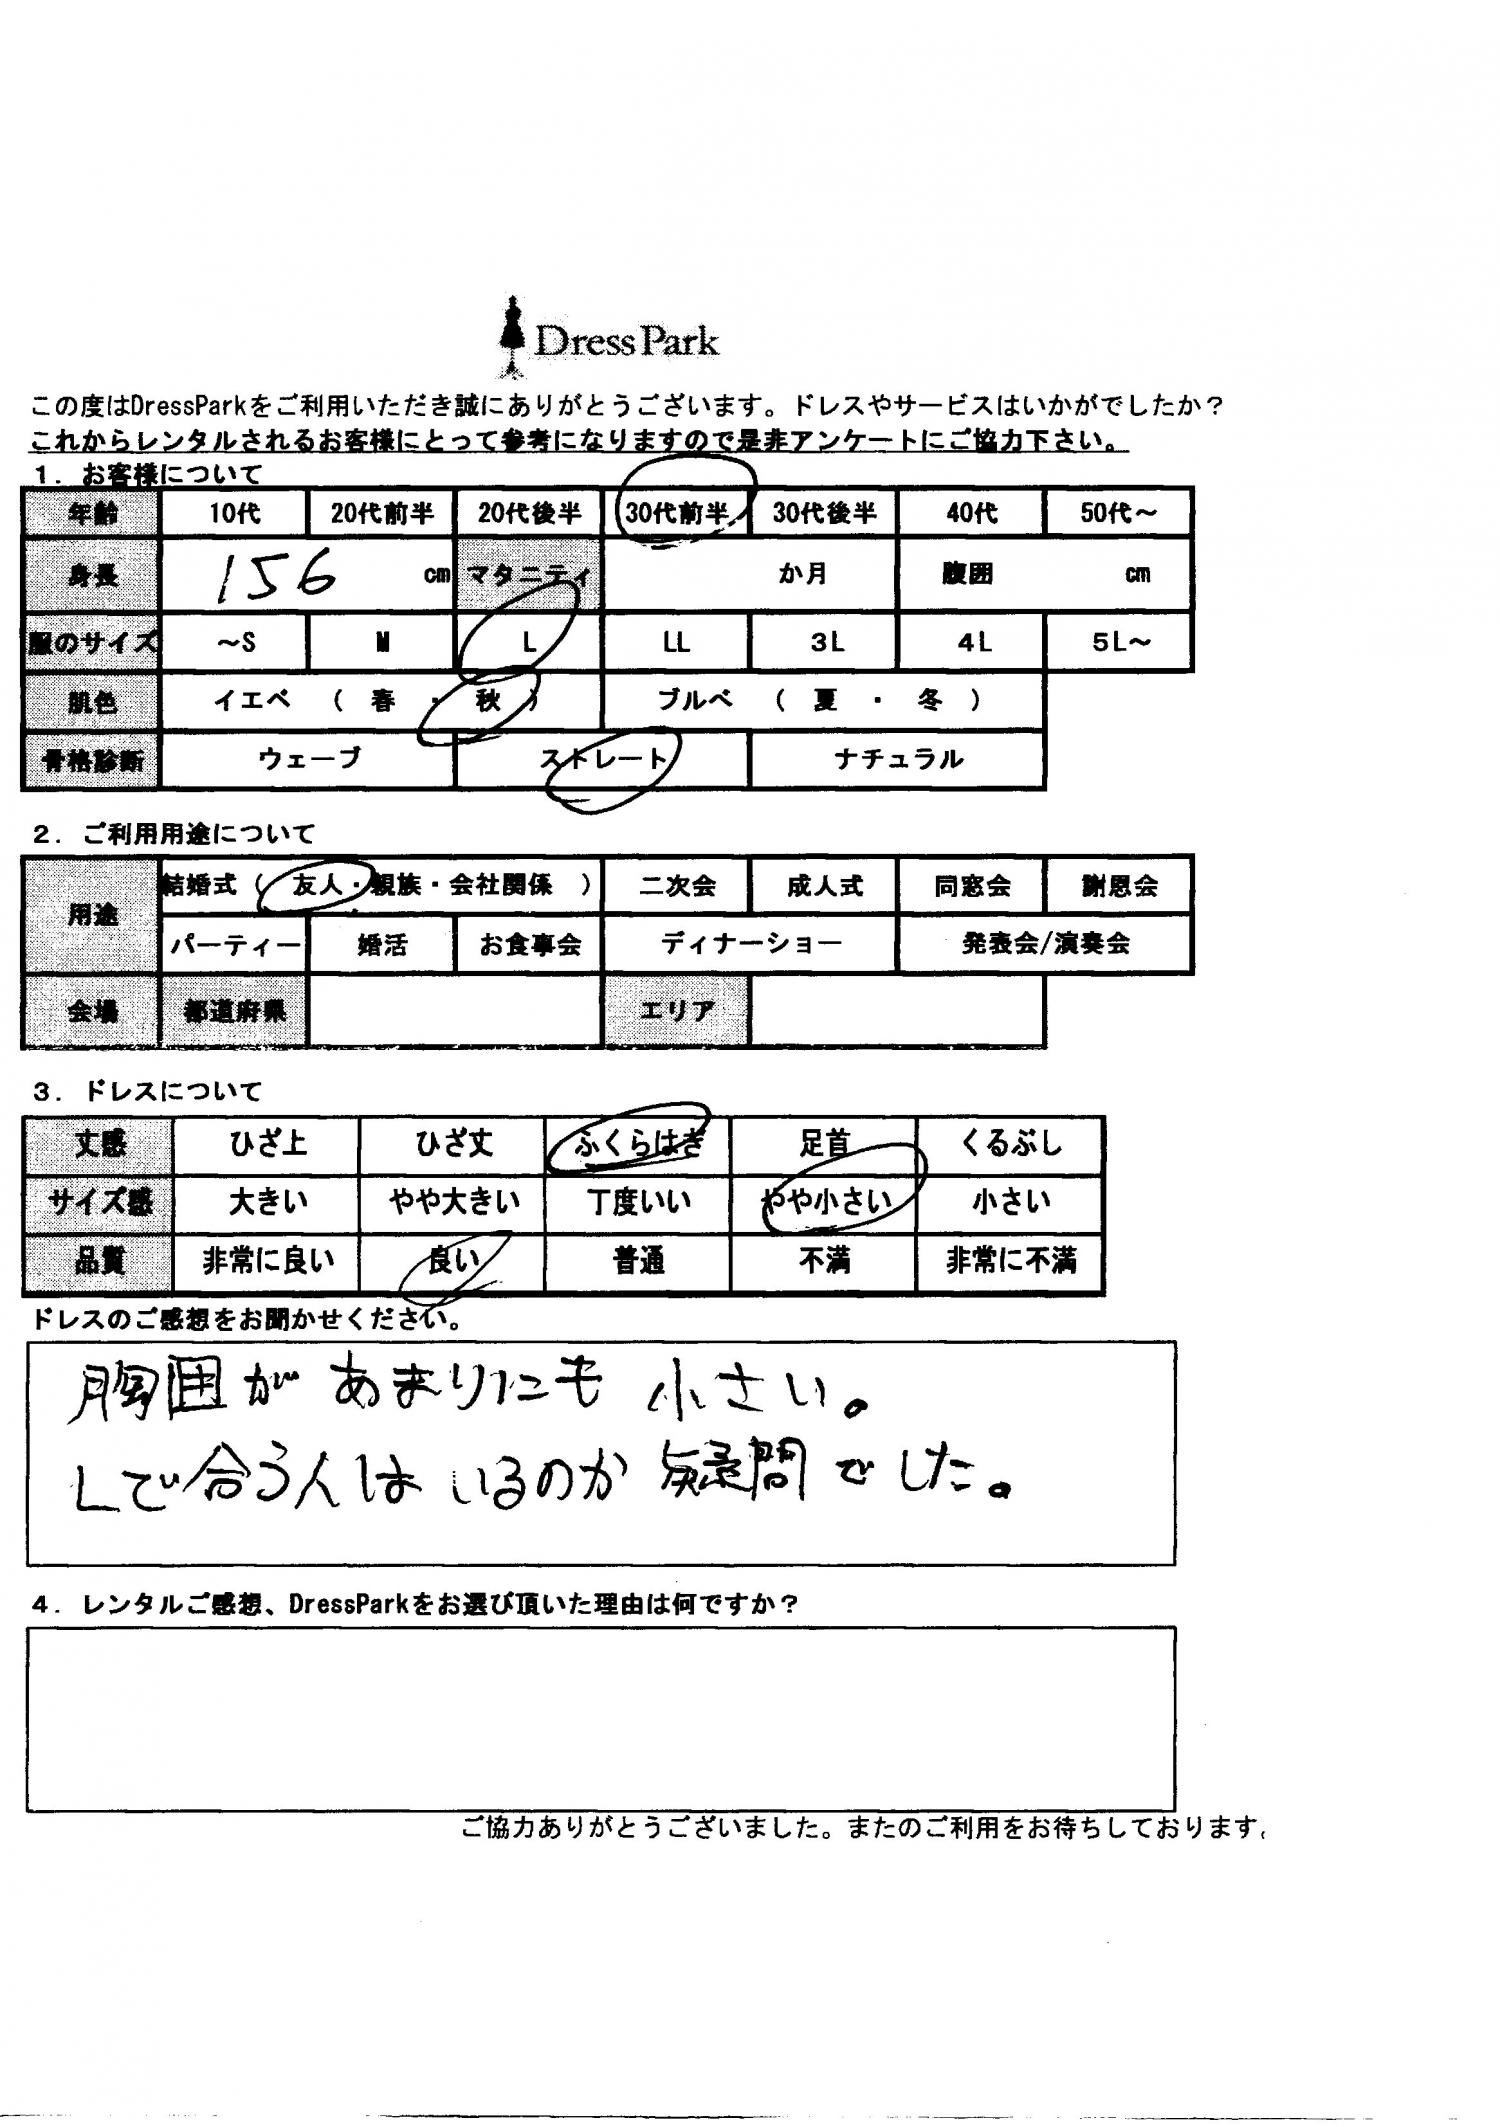 DressPark
この度はDressParkをご利用いただき誠にありがとうございます。ドレスやサービスはいかがでしたか？
これからレンタルされるお客様にとって参考になりますので是非アンケートにご協力下さい。
１．お客様について
年齢 10代 20代前半 20代後半 30代前半 30代後半 40代 50代～
身長 156 cm マタニティ か月 腹囲 cm
服のサイズ ～S M L LL 3L 4L 5L～
肌色 イエベ （ 春 ・ 秋 ） ブルベ （ 夏 ・ 冬 ）
骨格診断 ウェーブ ストレート ナチュラル
２．ご利用用途について
用途 結婚式（ 友人・親族・会社関係 ） 二次会 成人式 同窓会 謝恩会
パーティー 婚活 お食事会 ディナーショー 発表会/演奏会
会場 都道府県 エリア
３．ドレスについて
丈感 ひざ上 ひざ丈 ふくらはぎ 足首 くるぶし
サイズ感 大きい やや大きい 丁度いい やや小さい 小さい
品質 非常に良い 良い 普通 不満 非常に不満
ドレスのご感想をお聞かせください。
胸囲が あまりにも 小さい。
Lで合う人は いるのか 疑問でした。
４．レンタルご感想、DressParkをお選び頂いた理由は何ですか？
ご協力ありがとうございました。またのご利用をお待ちしております。